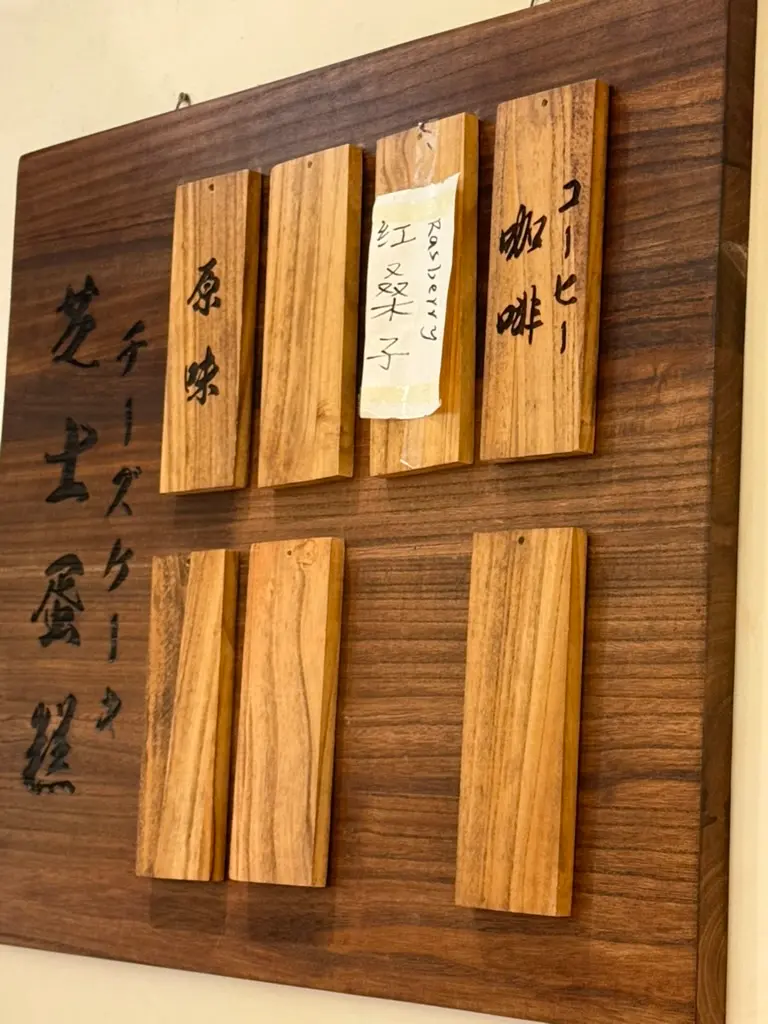 芝士蛋糕
チーズケーキ
原味
红桑子
Rasberry
咖啡
コーヒー